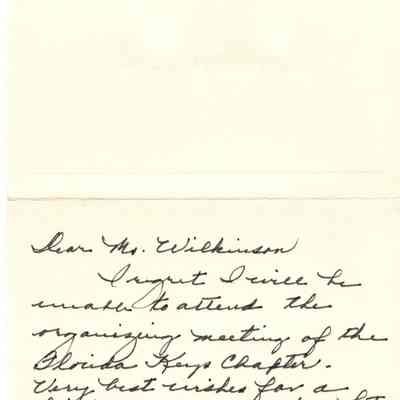 Dear Ms. Wilkinson
I regret I will be
unable to attend the
organizing meeting of the
Florida Keys Chapter.
Very best wishes for a